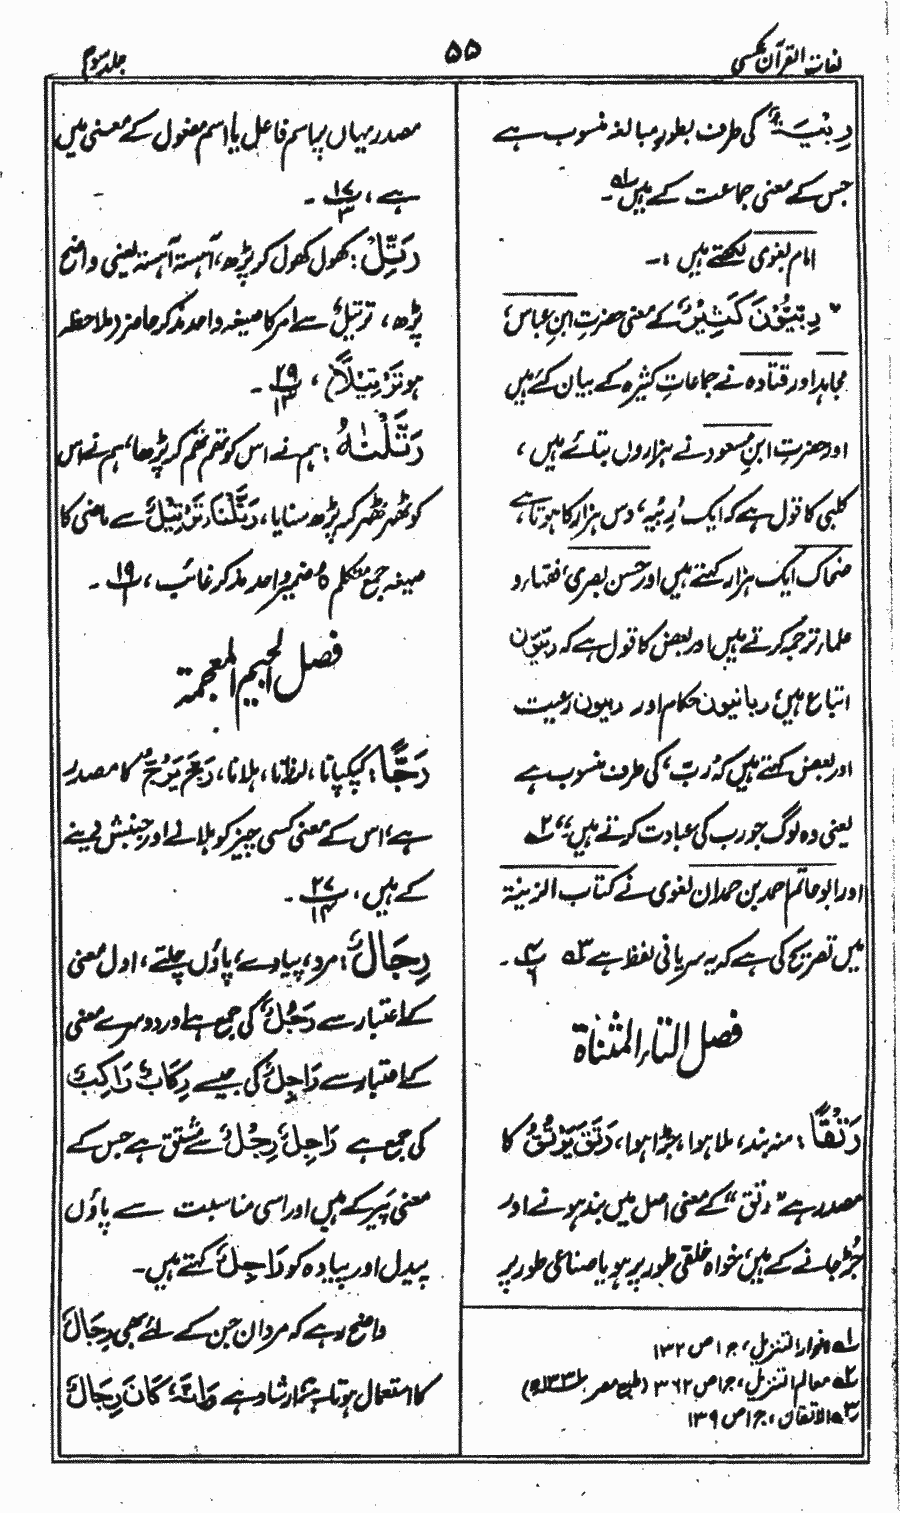 لغات القرآن عکسی
۵۵
جلد سوم
رِبِّیَّۃٌ کی طرف بطورِ مبالغہ منسوب ہے
جس کے معنی جماعت کے ہیں ۱ـہ۔
امام بغوی لکھتے ہیں :۔
" رِبِّیُّوْنَ کَثِیْرٌ کے معنی حضرتِ ابنِ عباس،
مجاہد اور قتادہ نے جماعاتِ کثیرہ کے بیان کئے ہیں
اور حضرتِ ابنِ مسعود نے ہزاروں بتلائے ہیں،
کلبی کا قول ہے کہ ایک رِبِّیَّہ، دس ہزار کا ہوتا ہے،
ضحاک ایک ہزار کہتے ہیں اور حسن بصری، فقہاء و
علماء ترجمہ کرتے ہیں اور بعض کا قول ہے کہ ربیّون
اتباع ہیں، ربانیون حکام اور ربیون رعیت
اور بعض کہتے ہیں کہ رب، کی طرف منسوب ہے
یعنی وہ لوگ جو رب کی عبادت کرتے ہیں"؛ ۲ـہ
اور ابو حاتم احمد بن حمدان لغوی نے کتاب الزینۃ
میں تصریح کی ہے کہ یہ سریانی لفظ ہے ۳ـہ
فصل التاء المثناة
رَتْقًا : منہ بند، ملا ہوا، جڑا ہوا، رَتَقَ یَرْتُقُ کا
مصدر ہے " رتق " کے معنی اصل میں بند ہونے اور
جُڑ جانے کے ہیں، خواہ خلقی طور پر ہو یا صناعی طور پر
۱ـہ انوار التنزیل، ج ۱ ص ۱۳۲
۲ـہ معالم التنزیل، ج ۱ ص ۳۶۲ (طبع مصر ۱۳۳۱ھ)
۳ـہ الاتقان، ج ۱ ص ۱۳۹
مصدر یہاں پر اسم فاعل یا اسم مفعول کے معنی میں
ہے، ۱۷/۳ ۔
رَتِّلْ : کھول کھول کر پڑھ، آہستہ آہستہ یعنی واضح
پڑھ، ترتیلٌ سے امر کا صیغہ واحد مذکر حاضر (ملاحظہ
ہو تَرْتِیْلًا) ، ۲۹/۱۳ ۔
رَتَّلْنٰہُ : ہم نے اس کو تھم تھم کر پڑھا، ہم نے اس
کو ٹھہر ٹھہر کر پڑھ سنایا، رَتَّلْنَا، تَرْتِیْلٌ سے ماضی کا
صیغہ جمع متکلم ہُ ضمیر واحد مذکر غائب، ۱۹/۱ ۔
فصل الجیم المعجمة
رَجًّا : کپکپانا، لرزانا، ہلانا، رَجَّ یَرُجُّ کا مصدر
ہے، اس کے معنی کسی چیز کو ہلانے اور جنبش دینے
کے ہیں، ۲۷/۱۴ ۔
رِجَالٌ : مرد، پیادے، پاؤں چلتے، اول معنی
کے اعتبار سے رَجُلٌ کی جمع ہے اور دوسرے معنی
کے اعتبار سے رَاجِلٌ کی جیسے رِکَابٌ رَاکِبٌ
کی جمع ہے رَاجِلٌ رِجْلٌ سے مشتق ہے جس کے
معنی پَیر کے ہیں اور اسی مناسبت سے پاؤں
پیدل اور پیادہ کو رَاجِلٌ کہتے ہیں۔
واضح رہے کہ مردان جن کے لئے بھی رِجَالٌ
کا استعمال ہوتا ہے چنانچہ ارشاد ہے وَاِنَّہٗ کَانَ رِجَالٌ